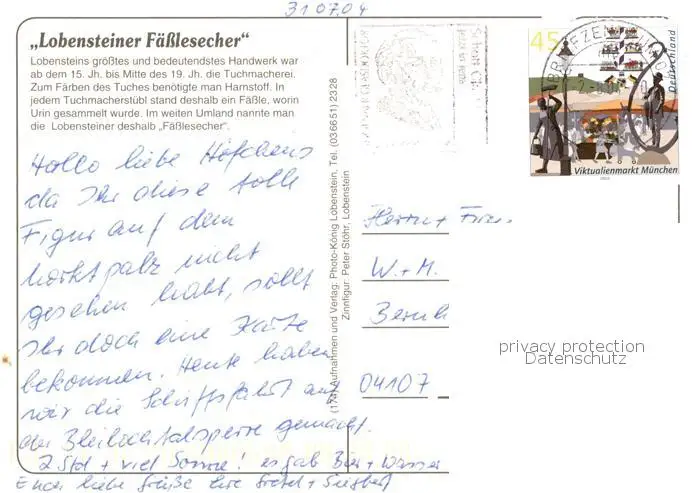 31 07. 04
„Lobensteiner Fäßlesecher"
Lobensteins größtes und bedeutendstes Handwerk war
ab dem 15. Jh. bis Mitte des 19. Jh. die Tuchmacherei.
Zum Färben des Tuches benötigte man Harnstoff. In
jedem Tuchmacherstübl stand deshalb ein Fäßle, worin
Urin gesammelt wurde. Im weiten Umland nannte man
die Lobensteiner deshalb „Fäßlesecher".
Hallo liebe Höfchens
da Ihr diese tolle
Figur auf dem
Marktpalz nicht
gesehen habt, sollt
Ihr doch eine Karte
bekommen. Heute haben
wir die Schiffsfahrt auf
der Bleilochtalsperre gemacht.
2 Std + viel Sonne! es gab Bier + Wasser
Euch liebe Grüße Eure + Siegbert
(174) Aufnahmen und Verlag: Photo-König Lobenstein, Tel. (036651) 2328
Zinnfigur: Peter Stöhr, Lobenstein
45
Deutschland
Viktualienmarkt München
BRIEFZENTRUM
Herrn + Frau
W. + M.
04107
privacy protection
Datenschutz